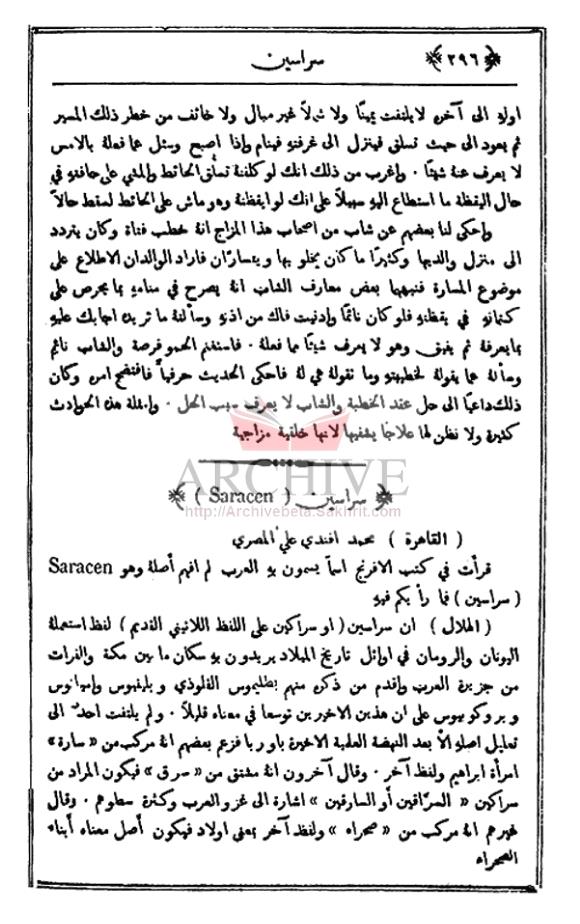 ﴿٢٩٦﴾ سراسين
اولهِ الى آخرهِ لا يلتفت يمينًا ولا شمالًا غير مبال ولا خائف من خطر ذلك المسير
ثم يعود الى حيث تسلق فينزل الى غرفتهِ فينام واذا اصبح وسئل عما فعلهُ بالامس
لا يعرف عنهُ شيئًا ٠ واغرب من ذلك انك لو كلفتهُ تسلُّق الحائط والمشي على حافتهِ في
حال اليقظة ما استطاع اليهِ سبيلًا على انك لو ايقظتهُ وهو ماش على الحائط لسقط حالًا
واحكى لنا بعضهم عن شاب من اصحاب هذا المزاج انهُ خطب فتاة وكان يتردد
الى منزل والديها وكثيرًا ما كان يخلو بها ويتسارَّان فاراد الوالدان الاطلاع على
موضوع المسارة فنبههما بعض معارف الشاب انهُ يصرح في منامهِ بما يحرص على
كتمانهِ في يقظتهِ فلو كان نائمًا وادنيت فاك من اذنهِ وسألتهُ ما تريد اجابك عليهِ
بما يعرفهُ ثم يفيق وهو لا يعرف شيئًا مما فعلهُ ٠ فاستغنم الحمو فرصة والشاب نائم
وسألهُ عما يقولهُ لخطيبتهِ وما تقولهُ هي لهُ فاحكى الحديث حرفيًّا فافتضح امره وكان
ذلك داعيًا الى حل عقد الخطبة والشاب لا يعرف سبب الحل ٠ وامثلة هذه الحوادث
كثيرة ولا نظن لها علاجًا يشفيها لانها خلقية مزاجية
ARCHIVE
﴿ سراسين ( Saracen ) ﴾
http://Archivebeta.Sakhrit.com
( القاهرة ) محمد افندي علي المصري
قرأت في كتب الافرنج اسمًا يسمون بهِ العرب لم افهم أصلهُ وهو Saracen
( سراسين ) فما رأيكم فيهِ
( الهلال ) ان سراسين ( او سراكين على اللفظ اللاتيني القديم ) لفظ استعملهُ
اليونان والرومان في اوائل تاريخ الميلاد يريدون بهِ سكان ما بين مكة والفرات
من جزيرة العرب واقدم من ذكره منهم بطليموس القلوذي وبلينيوس واميانوس
وبروكوبيوس على ان هذين الاخيرين توسعا في معناه قليلًا ٠ ولم يلتفت احدٌ الى
تعليل اصلهِ الاَّ بعد النهضة العلمية الاخيرة باوربا فزعم بعضهم انهُ مركب من « سارة »
امرأة ابراهيم ولفظ آخر ٠ وقال آخرون انهُ مشتق من « سرق » فيكون المراد من
سراكين « السرّاقين أو السارقين » اشارة الى غزو العرب وكثرة سطوهم ٠ وقال
غيرهم انهُ مركب من « صحراء » ولفظ آخر بمعنى اولاد فيكون أصل معناه أبناء
الصحراء